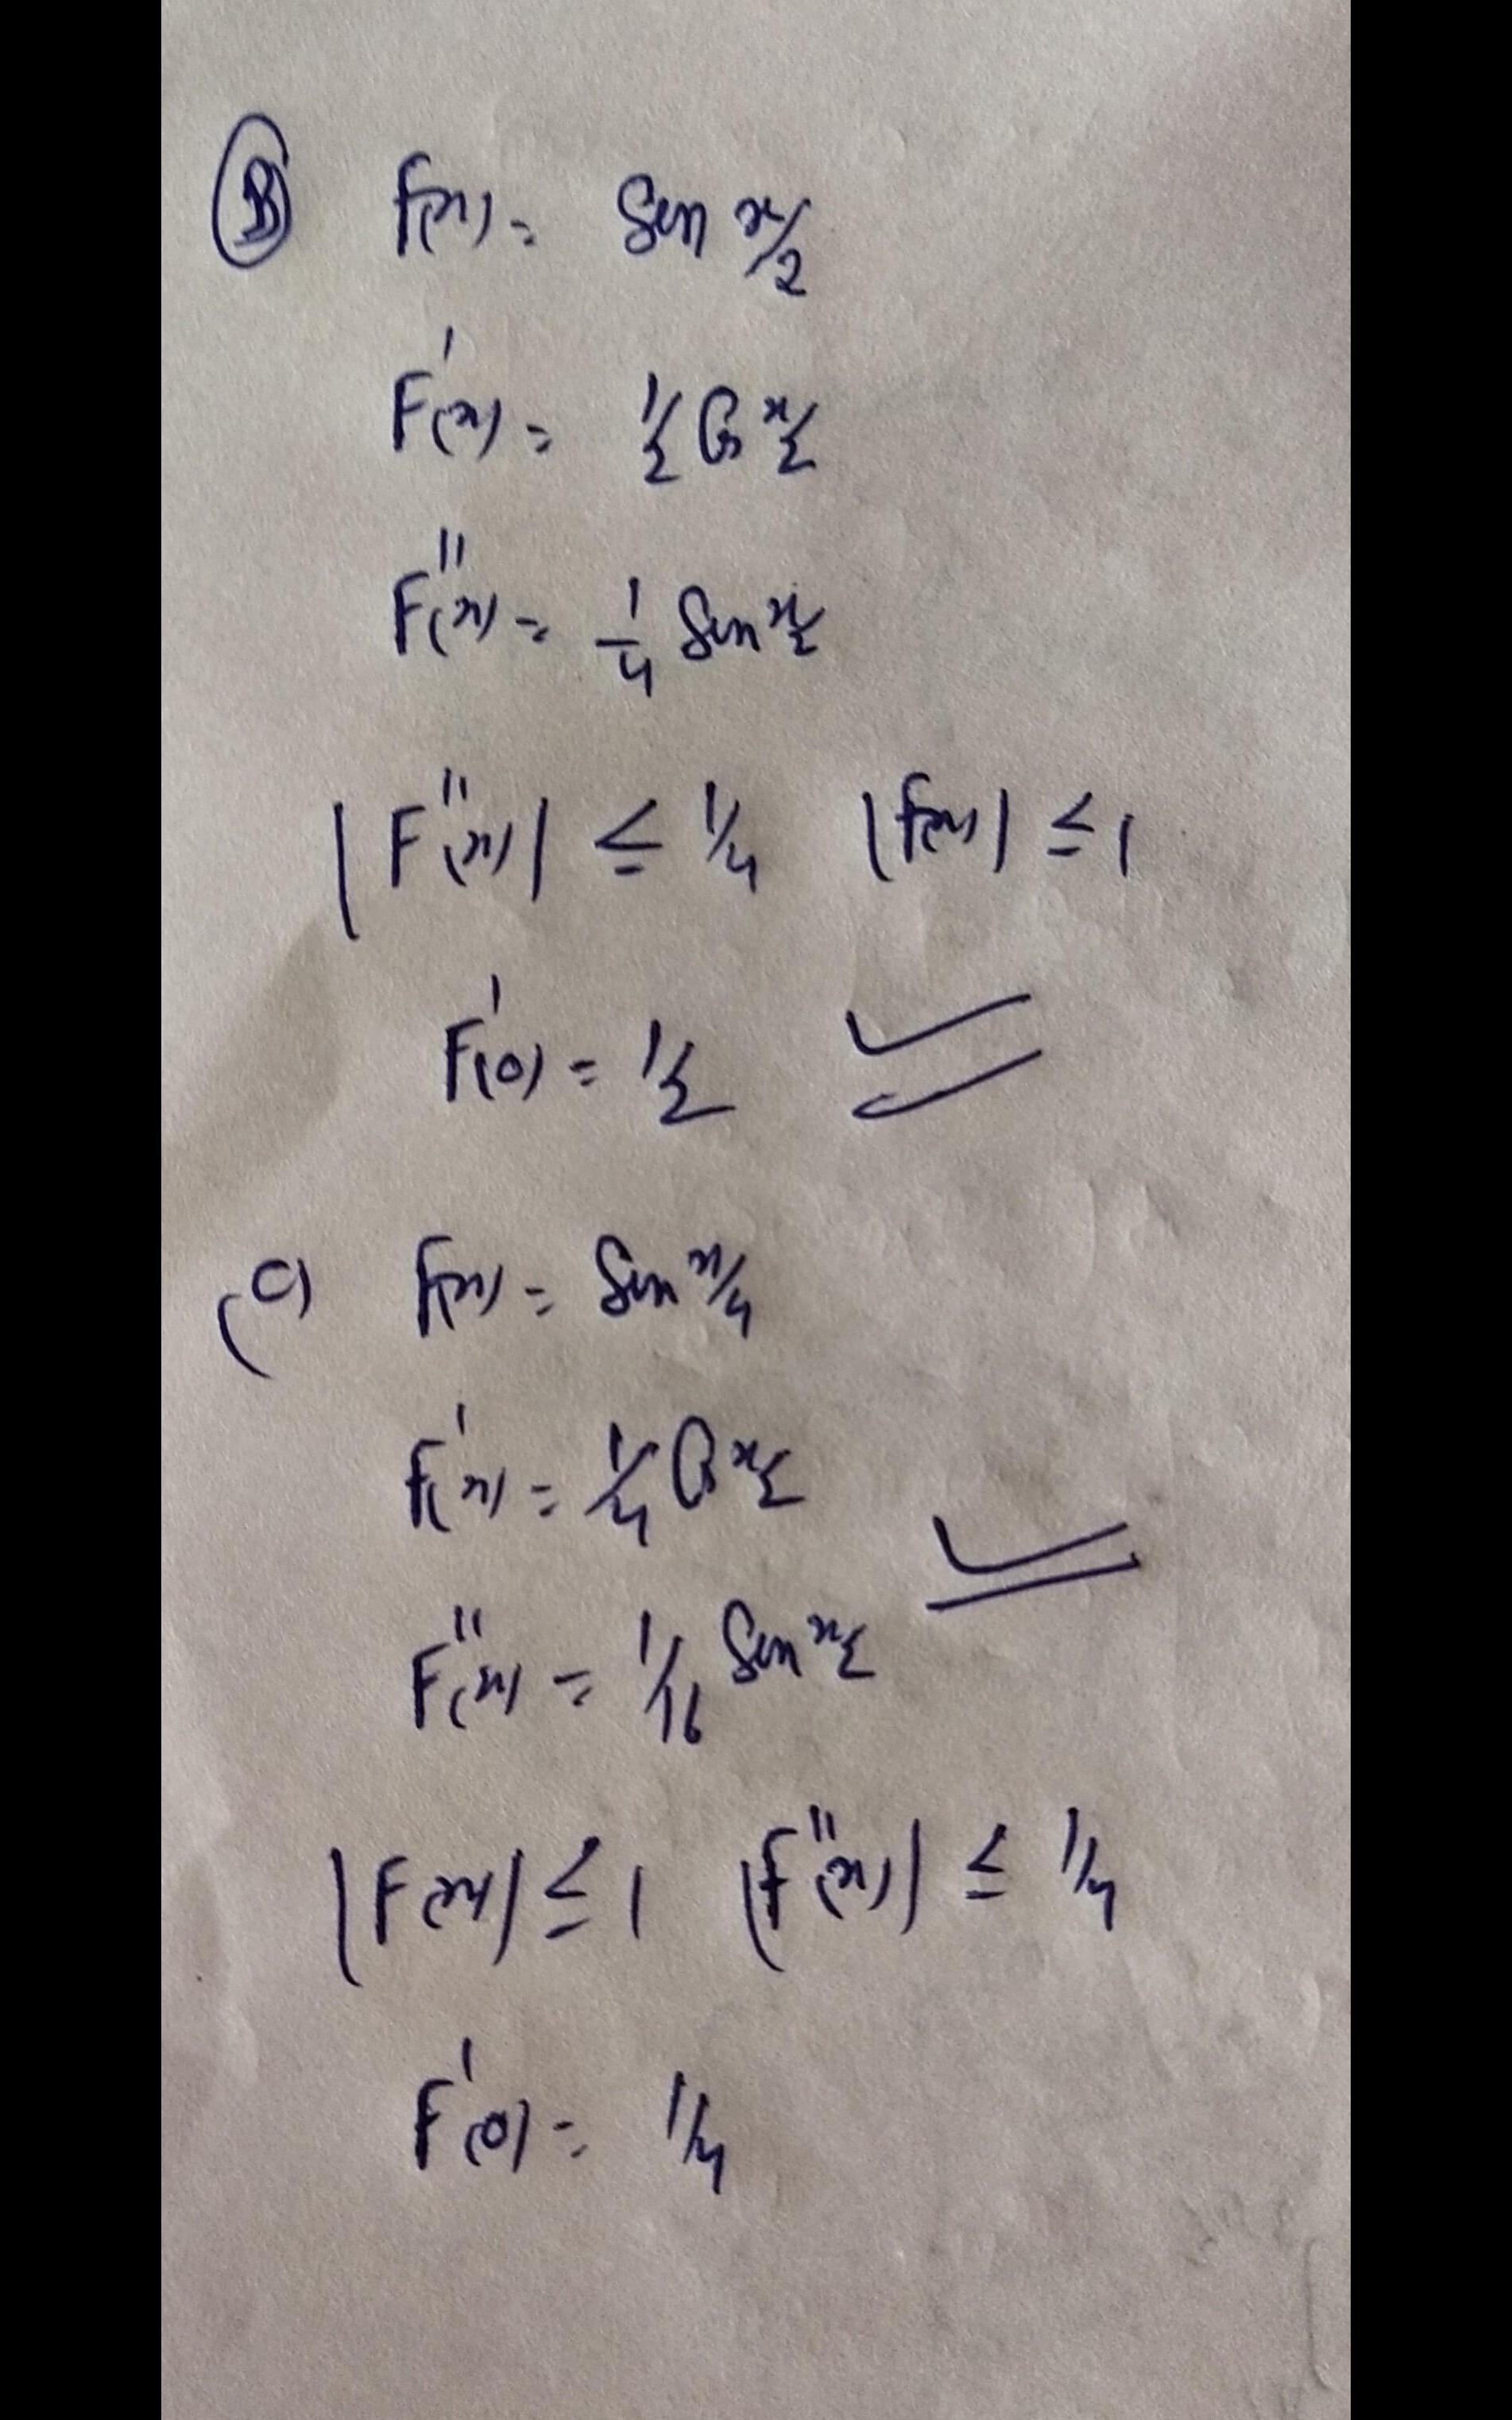 (B) f(x) = Sin x/2
F'(x) = 1/2 Cos x/2
F''(x) = 1/4 Sin x/2
|F''(x)| ≤ 1/4 |f(x)| ≤ 1
F'(0) = 1/2
(C) f(x) = Sin x/4
f'(x) = 1/4 Cos x/2
F''(x) = 1/16 Sin x/2
|F(x)| ≤ 1 |F''(x)| ≤ 1/4
F'(0) = 1/4